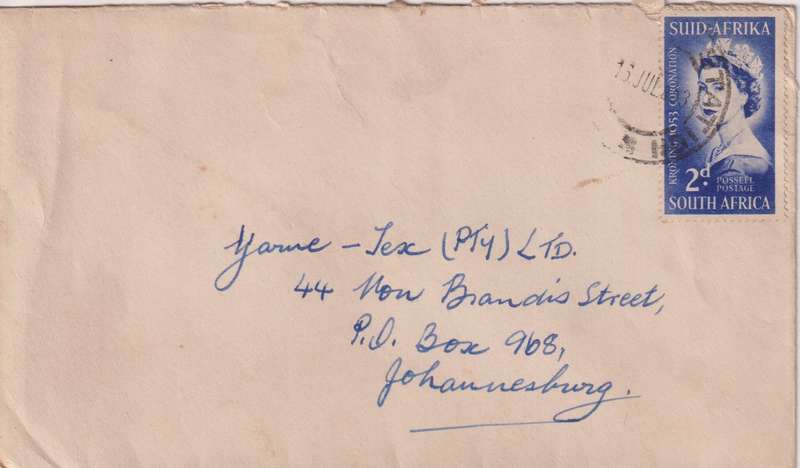 SUID-AFRIKA
KRONING 1953 CORONATION
2d.
POSSEËL
POSTAGE
SOUTH AFRICA
13 JUL
Yarne - Tex (PTY) LTD.
44 Von Brandis Street,
P.O. Box 968,
Johannesburg.